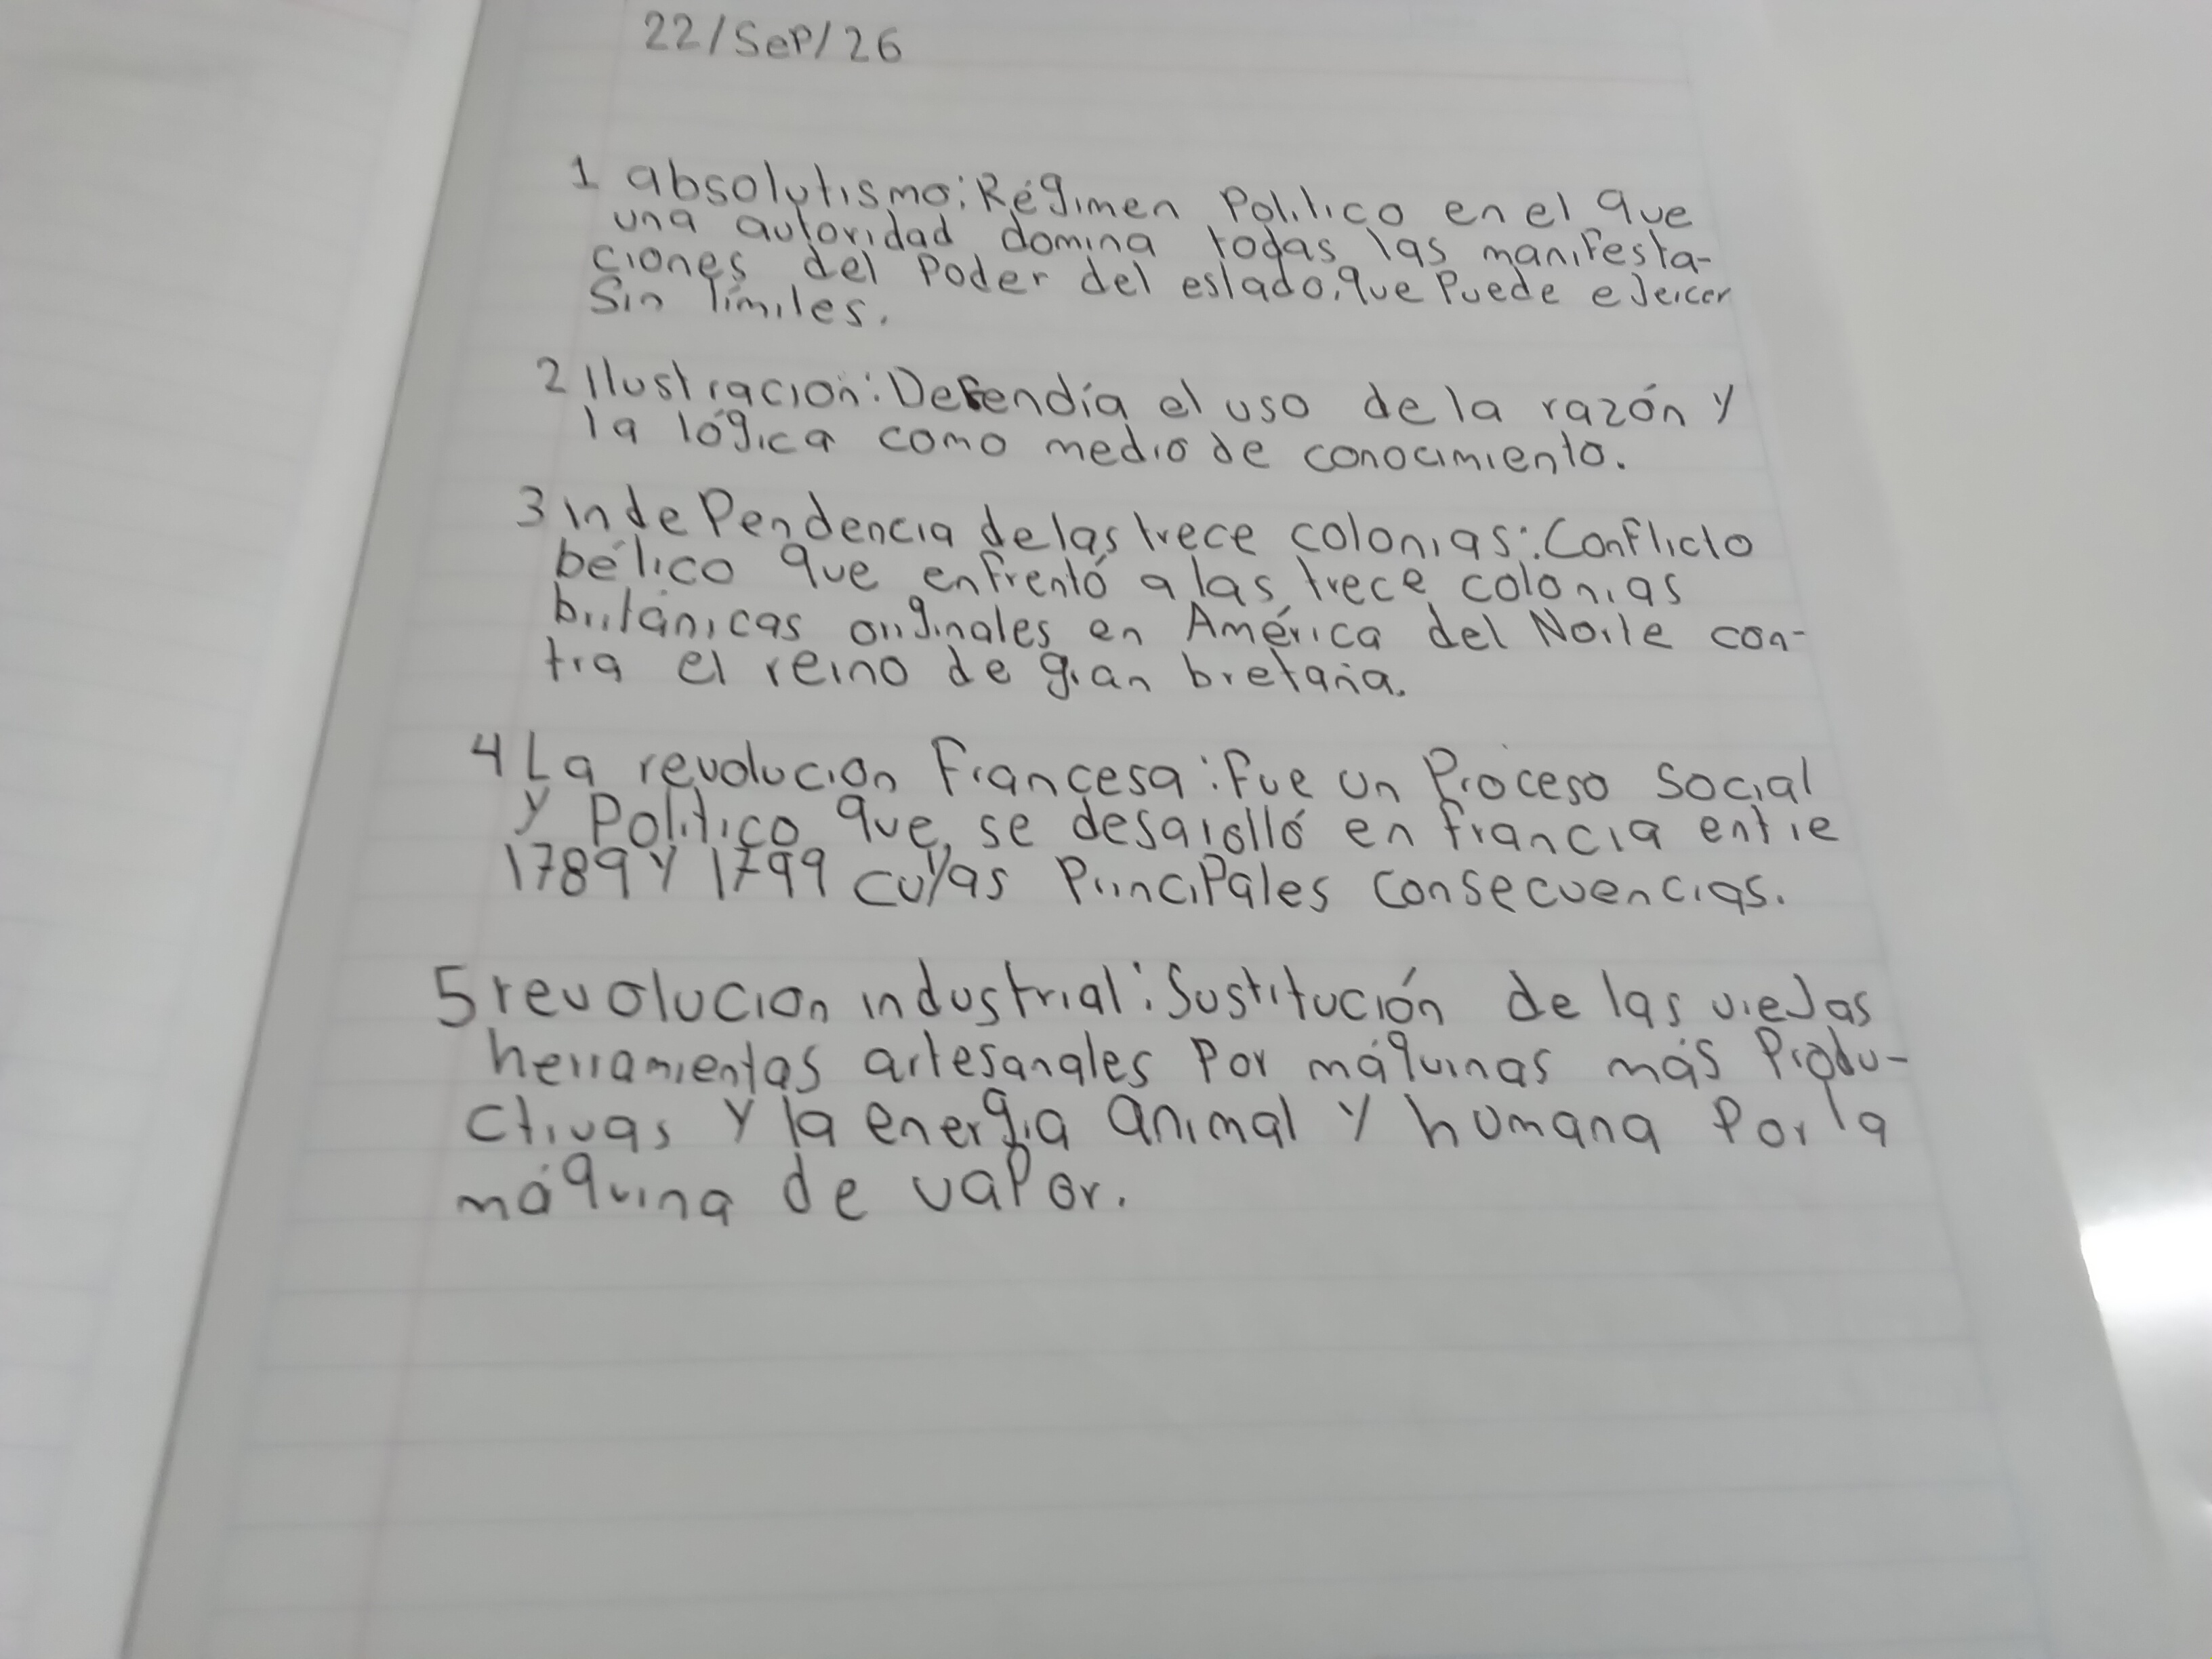 22/Sep/26
1 absolutismo: Régimen Político en el que
una autoridad domina todas las manifesta-
ciones del Poder del estado, que Puede eJercer
Sin límites.
2 Ilustracion: Defendía el uso de la razón y
la lógica como medio de conocimiento.
3 indePendencia de las trece colonias: Conflicto
bélico que enfrentó a las trece colonias
británicas originales en América del Norte con-
tra el reino de gran bretaña.
4 La revolucion Francesa: fue un Proceso Social
y Político que se desarolló en francia entre
1789 y 1799 cuyas PrinciPales consecuencias.
5 revolucion industrial: Sustitución de las vieJas
herramientas artesanales Por máquinas más Produ-
ctivas y la energia animal y humana Por la
máquina de vaPor.